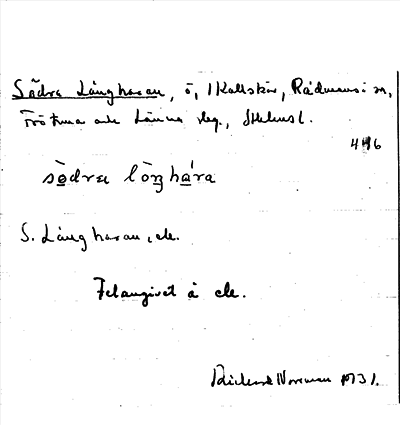 Södra Långharan, ö, i Kallskär, Rådmansö sn,
Frötuna och Länna slg., Sthlms l.
4H6
södræ lòŋhára
S. Långharan, ek.
Felangivet å ek.
Rickard Norrman 1931.